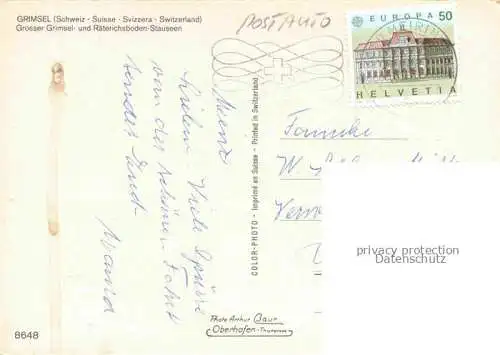 GRIMSEL (Schweiz - Suisse - Svizzera - Switzerland)
Grosser Grimsel- und Räterichsboden-Stausee
POSTAUTO
EUROPA 50
HELVETIA
Meine
Lieben. Viele Grüsse
von der schönen Fahrt
Mama
COLOR-PHOTO - Imprimé en Suisse - Printed in Switzerland
Familie
W.
privacy protection
Datenschutz
Photo Arthur Baur
Oberhofen-Thunersee
8648